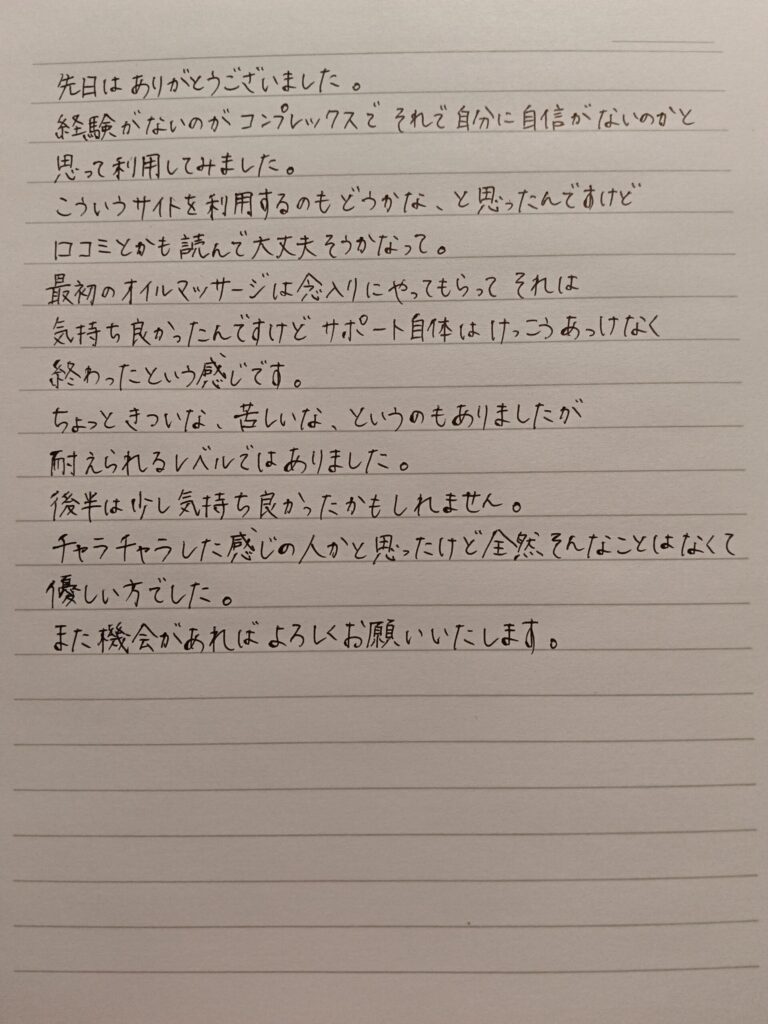 先日はありがとうございました。
経験がないのがコンプレックスでそれで自分に自信がないのかと
思って利用してみました。
こういうサイトを利用するのもどうかな、と思ったんですけど
口コミとかも読んで大丈夫そうかなって。
最初のオイルマッサージは念入りにやってもらってそれは
気持ち良かったんですけどサポート自体はけっこうあっけなく
終わったという感じです。
ちょっときついな、苦しいな、というのもありましたが
耐えられるレベルではありました。
後半は少し気持ち良かったかもしれません。
チャラチャラした感じの人かと思ったけど全然、そんなことはなくて
優しい方でした。
また機会があればよろしくお願いいたします。